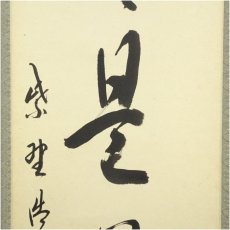 是
紫野